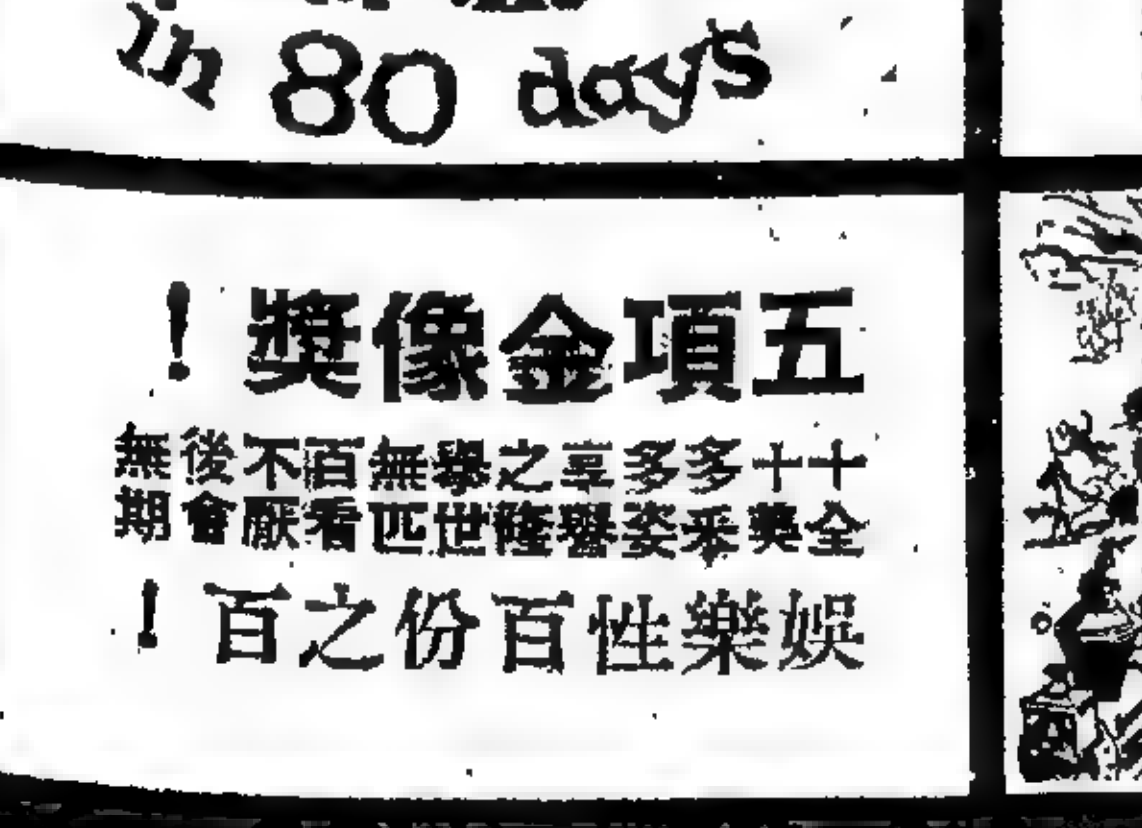 in 80 days
五項金像獎!
十全十美多采多姿享譽之隆舉世無匹百看不厭後會無期
娛樂性百份百之!